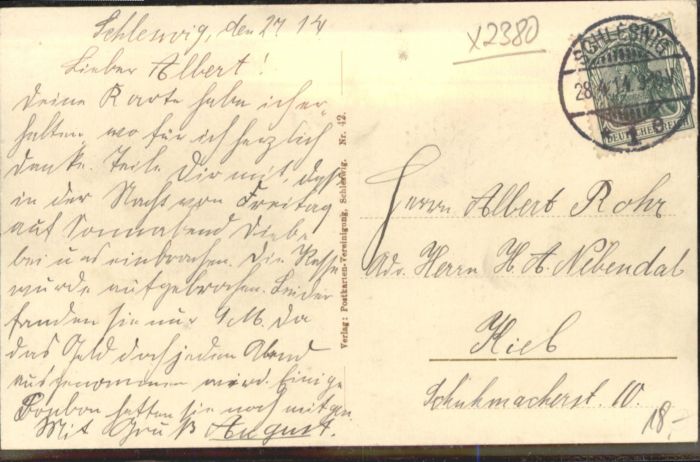 Schleswig, den 27 14
Lieber Albert!
Deine Karte habe ich er-
halten, wo für ich herzlich
danke. Teile Dir mit, daß
in der Nacht von Freitag
auf Sonnabend Diebe
bei uns einbrachen. Die Kasse
wurde aufgebrochen. Leider
fanden sie nur M. Da
das Geld doch jeden Abend
ausgenommen wird. Einige
Bonbon hatten sie noch mitgen.
Mit Gruß August.
Verlag: Postkarten-Vereinigung, Schleswig. Nr. 42.
x2380
SCHLESWIG
28.4.14
* 1 g
DEUTSCHES REICH
Herrn Albert Rohr
Adr. Herrn H. A. Nebendal
Kiel
Schuhmacherst. 10.
18.-